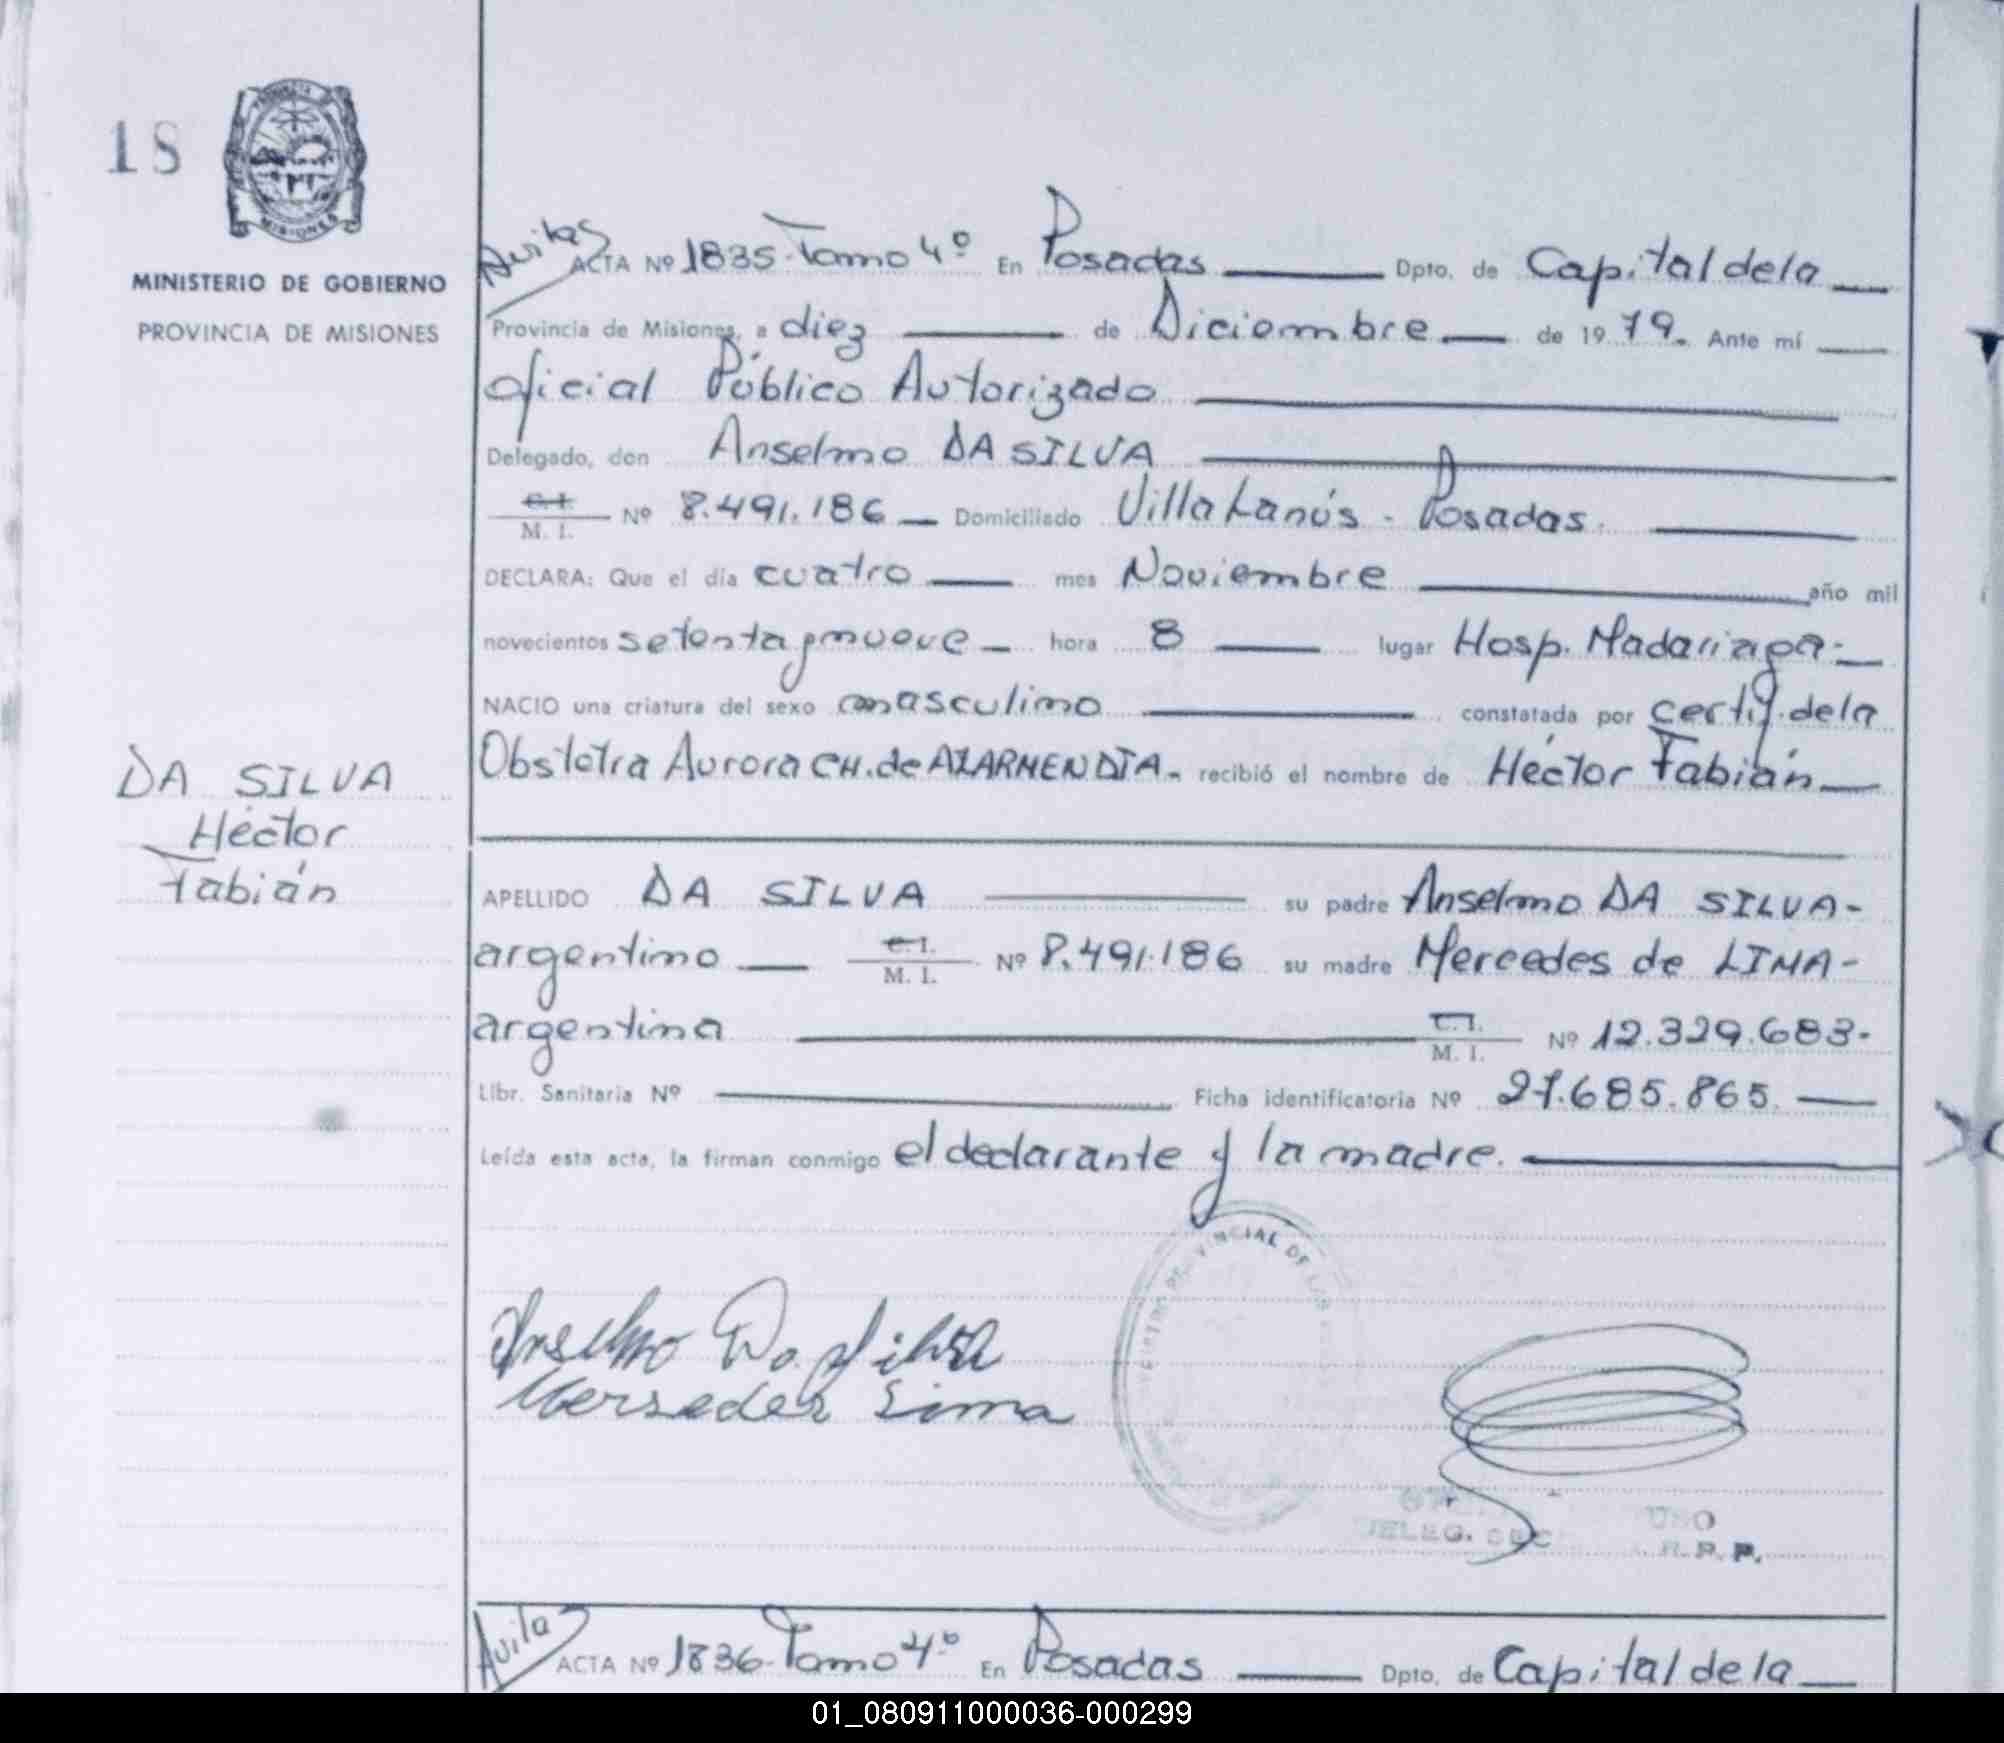 18
MINISTERIO DE GOBIERNO
PROVINCIA DE MISIONES
ACTA Nº 1835-Tomo 4º En Posadas Dpto. de Capital de la
Provincia de Misiones, a diez de Diciembre de 1979. Ante mí
oficial Público Autorizado
Delegado, don Anselmo DA SILVA
C.I. M. I. Nº 8.491.186 Domiciliado Villa Lanús - Posadas.
DECLARA: Que el día cuatro mes Noviembre año mil
novecientos setenta y nueve hora 8 lugar Hosp. Madariaga.
NACIO una criatura del sexo masculino constatada por certif. de la
Obstetra Aurora CH. de recibió el nombre de Héctor Fabián
DA SILVA
Héctor
Fabián
APELLIDO DA SILVA su padre Anselmo DA SILVA-
argentino C.I. M. I. Nº 8.491.186 su madre Mercedes de LIMA-
argentina C.I. M. I. Nº 12.329.683-
Libr. Sanitaria Nº Ficha identificatoria Nº 27.685.865.
Leída esta acta, la firman conmigo el declarante y la madre.
Anselmo Da Silva
Mersedes Lima
DELEG.
R.P.P.
Avila ACTA Nº 1836-Tomo 4º En Posadas Dpto. de Capital de la
01_080911000036-000299